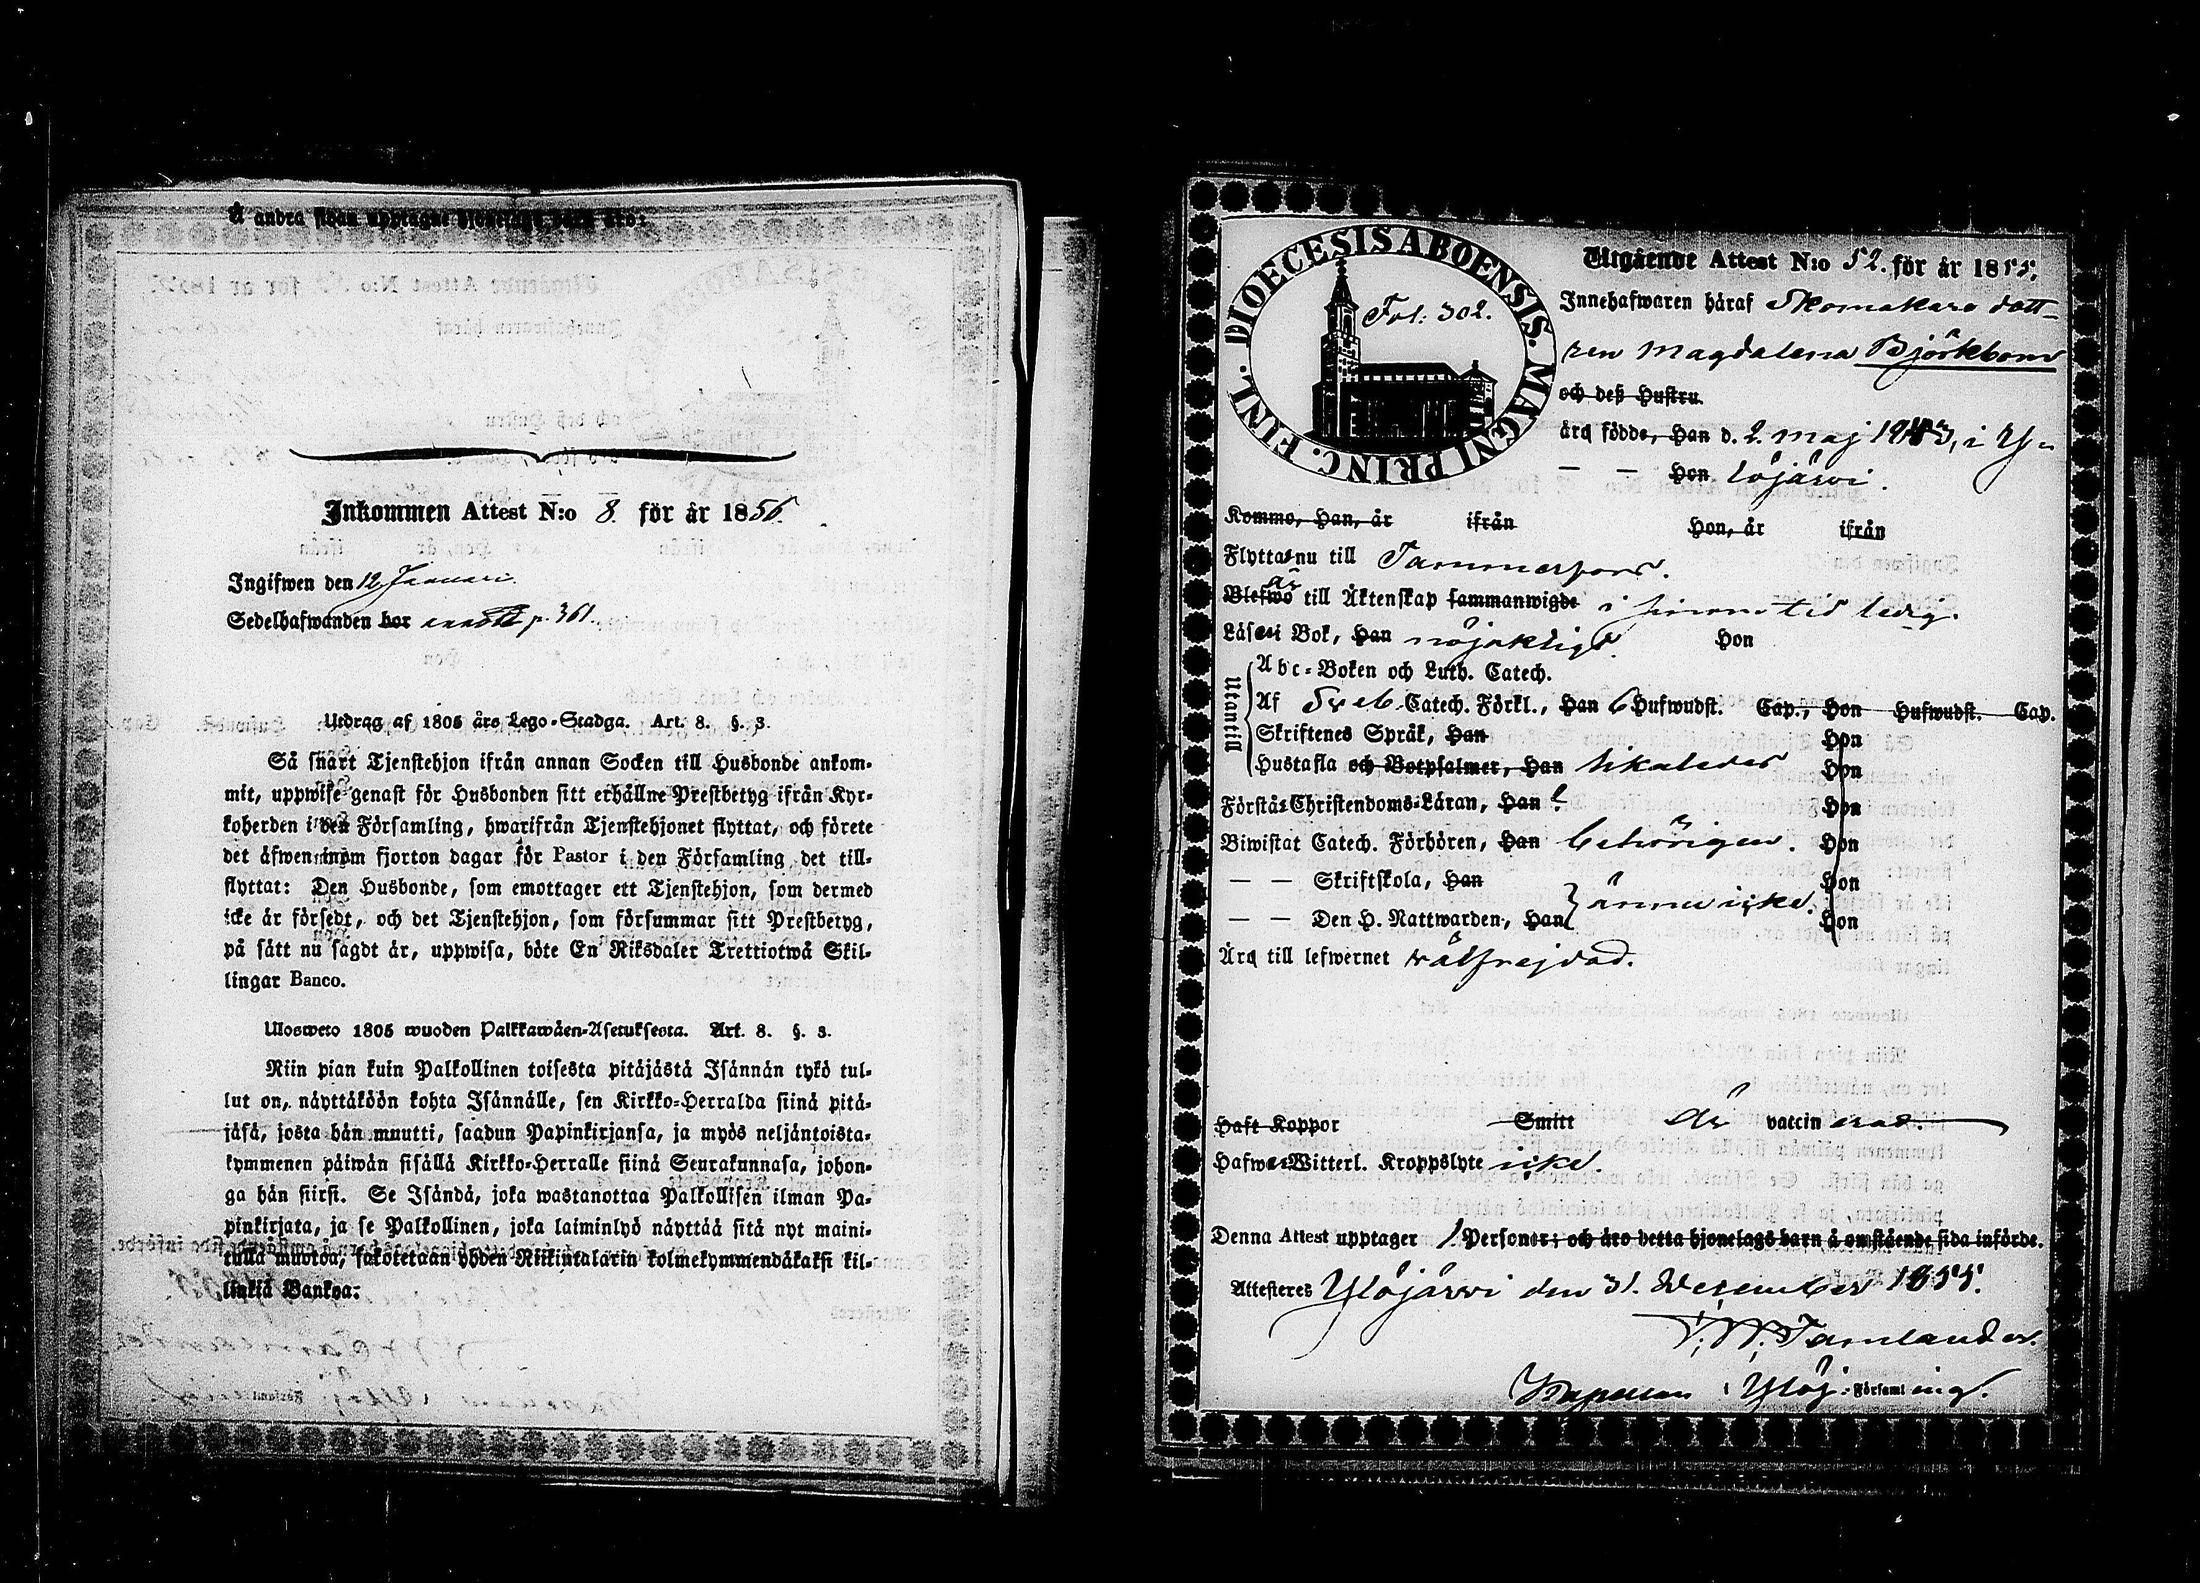 Å andra sidan upptagne hjonelags barn äro:
Inkommen Attest N:o 8. för år 1856.
Ingifwen den 12 Januari.
Sedelhafwanden bor p. 361.
Utdrag af 1805 års Lego-Stadga. Art. 8. §. 3.
Så snart Tjenstehjon ifrån annan Socken till Husbonde ankom-
mit, uppwise genast för Husbonden sitt erhållne Prestbetyg ifrån Kyr-
koherden i den Församling, hwarifrån Tjenstehjonet flyttat, och förete
det äfwen inom fjorton dagar för Pastor i den Församling det till-
flyttat: Den Husbonde, som emottager ett Tjenstehjon, som dermed
icke är försedt, och det Tjenstehjon, som försummar sitt Prestbetyg,
på sätt nu sagdt är, uppwisa, böte En Riksdaler Trettiotwå Skil-
lingar Banco.
Ulosweto 1805 wuoden Palkkawäen-Asetuksesta. Art. 8. §. 3.
Niin pian kuin Palkollinen toisesta pitäjästä Isännän tykö tul-
lut on, näyttäköön kohta Isännälle, sen Kirkko-Herralda siinä pitä-
jäsä, josta hän muutti, saadun Papinkirjansa, ja myös neljäntoista-
kymmenen päiwän sisällä Kirkko-Herralle siinä Seurakunnasa, johon-
ga hän siirsi. Se Isändä, joka wastanottaa Palkollisen ilman Pa-
pinkirjata, ja se Palkollinen, joka laiminlyö näyttää sitä nyt maini-
tulla muotoa, sakotetaan yhden Riikintalarin kolmekymmendäkaksi kil-
linkiä Bankya:
DIOECESIS ABOENSIS. MAGNI PRINC. FINL.
Fol: 302.
Utgående Attest N:o 52. för år 1855.
Innehafwaren häraf Skomakare dott-
ren Magdalena Björkbom
och deß Hustru
äro födde, Han d. 2. maj 1843, i Y-
— — Hon löjärvi.
Kommo, Han, år ifrån Hon, år ifrån
Flytta nu till Tammerfors.
Blefwo är till Äktenskap sammanwigde i sinom tid ledig.
Läser i Bok, Han nöjaktigt. Hon
Utantill
Abc-Boken och Luth. Catech.
Af Sveb. Catech. Förkl., Han 6 Hufwudst. Cap., Hon Hufwudst. Cap.
Skriftenes Språk, Han Hon
Hustafla och Botpsalmer, Han likaledes Hon
Förstå: Christendoms-Läran, Han Hon
Biwistat Catech. Förhören, Han behörigen. Hon
— — Skriftskola, Han Hon
ännu icke.
— — Den H. Nattwarden, Han Hon
Äro till lefwernet välfrejdad.
Haft Koppor Smitt är vaccin erad.
Hafwa Witterl. Kroppslyte icke.
Denna Attest upptager 1 Personer; och äro detta hjonelags barn å omstående sida införde.
Attesteres Ylöjärvi den 31. December 1855.
F. W. Tamlander.
Kapellan i Ylöj: Församl ing.